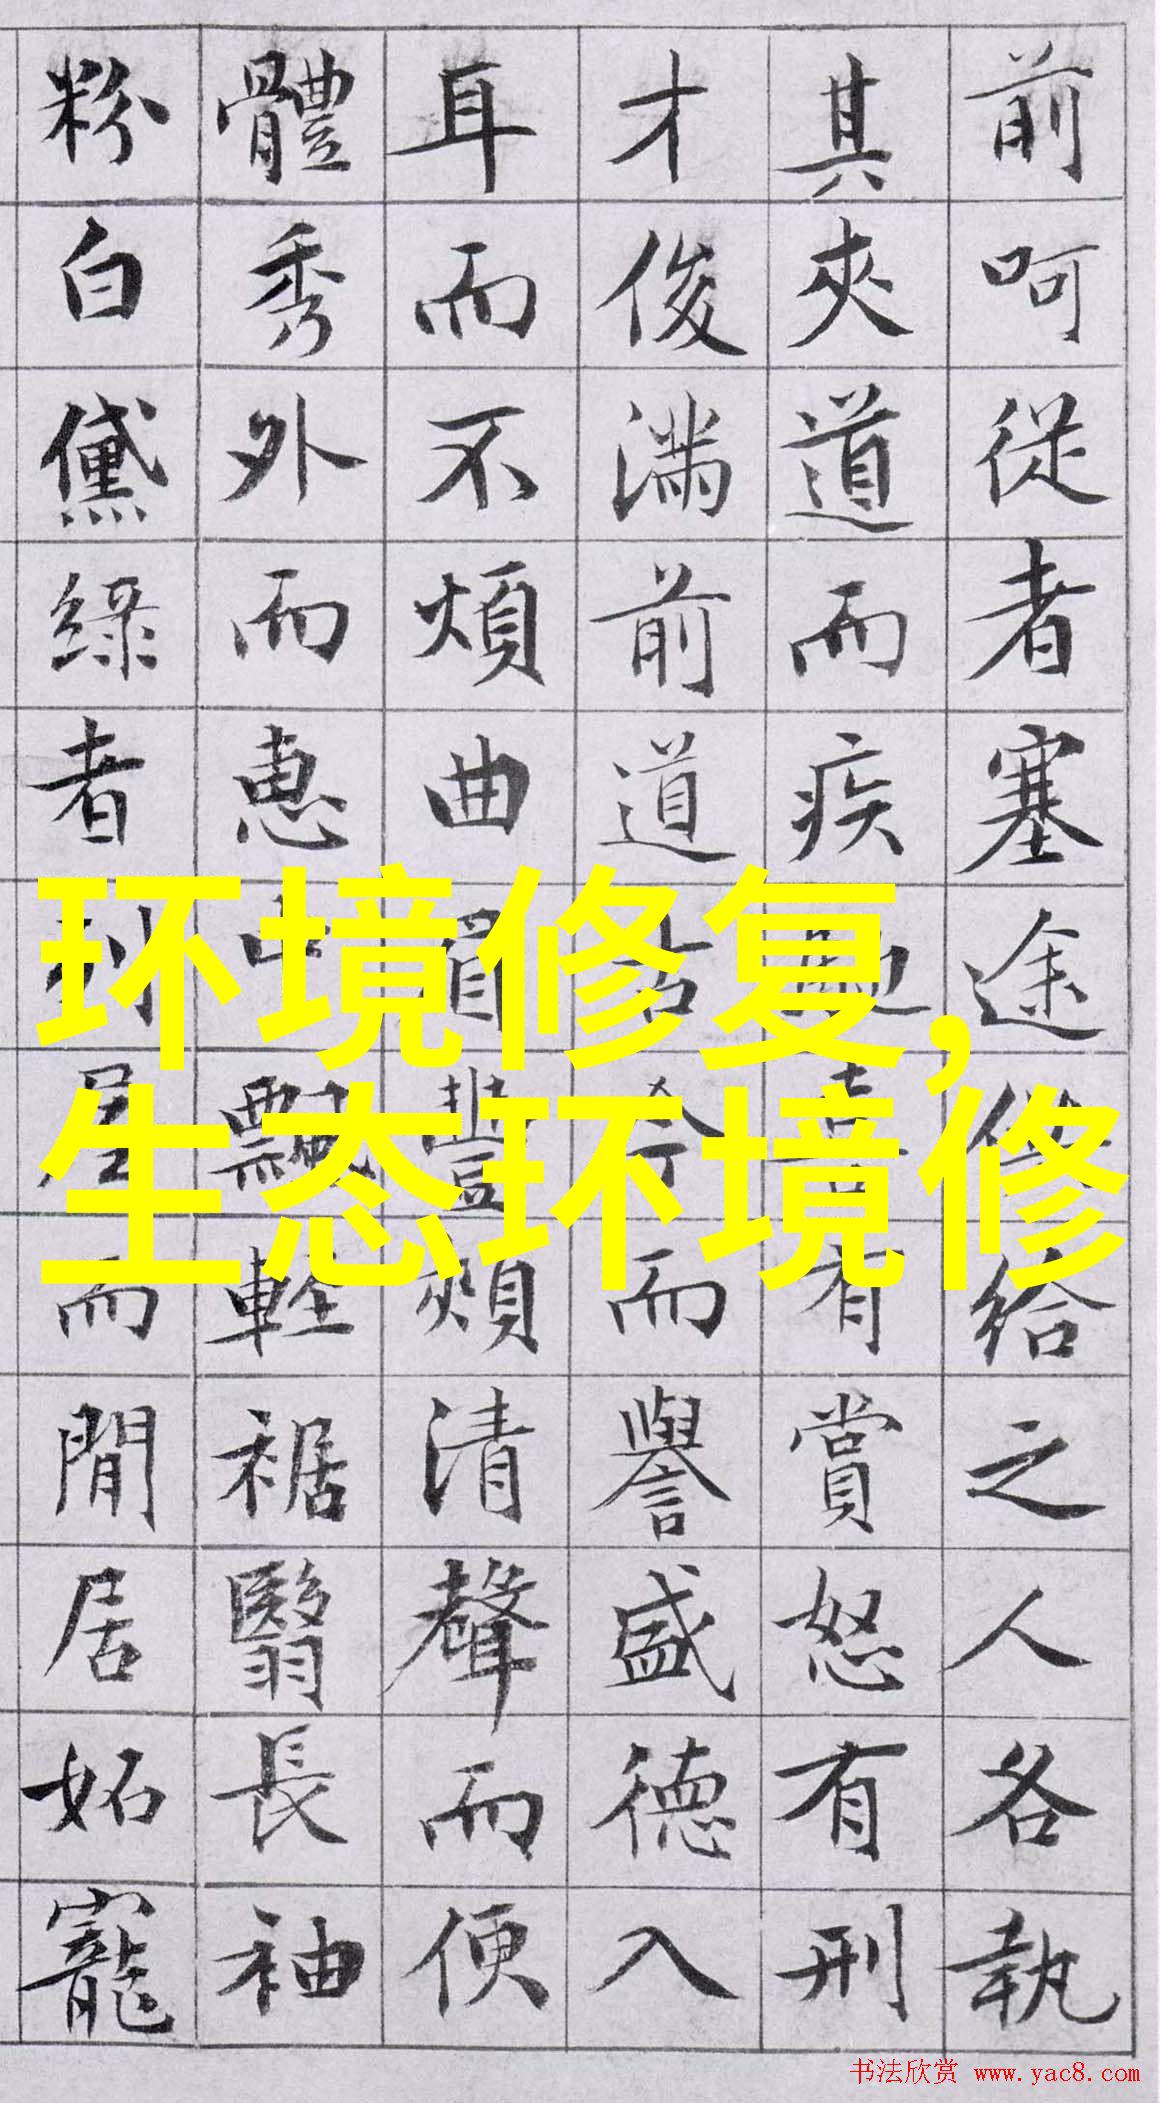 前呵從者塞途供給之人各執
其夾道而疾馳喜有賞怒有刑
才俊滿前道古今而譽盛德入
耳而不煩曲眉豐頰清聲而便
體秀外而惠中飄輕裾翳長袖
粉白黛綠者列屋而閒居妬寵
环境修复,
生态环境修
书法欣赏 www.yac8.com